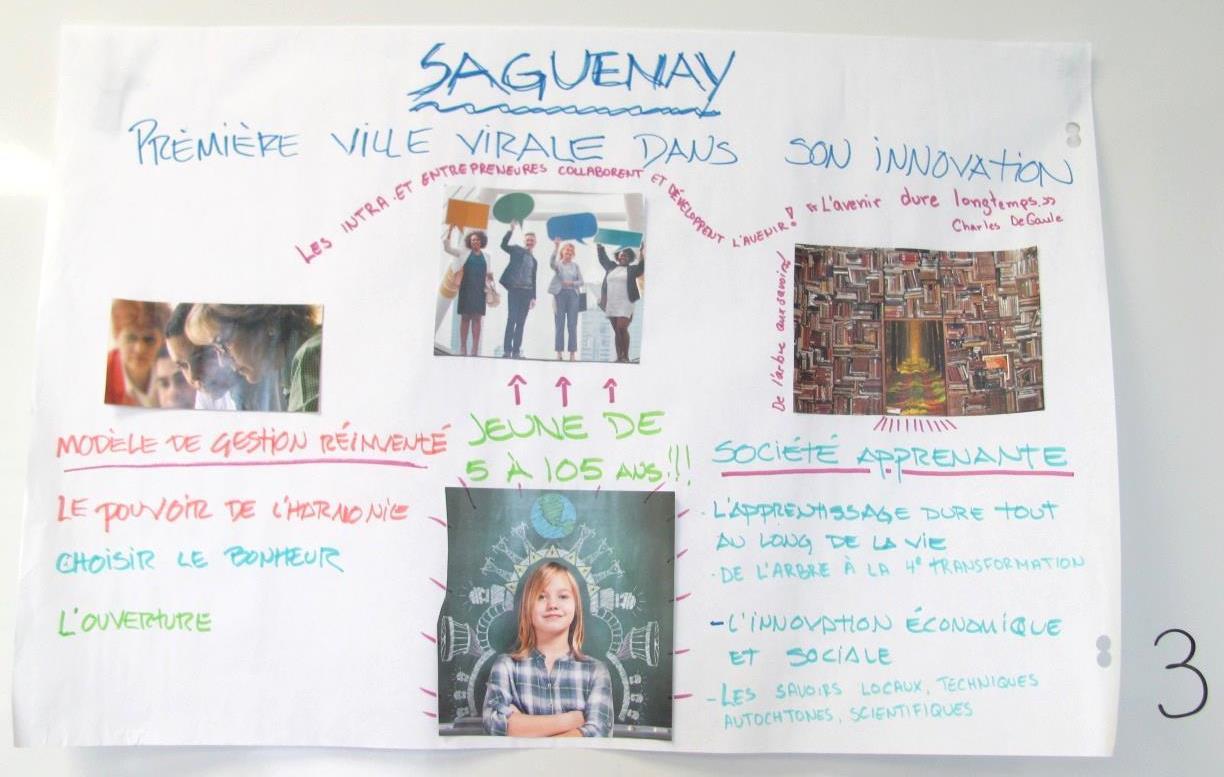 SAGUENAY
PREMIÈRE VILLE VIRALE DANS SON INNOVATION
LES INTRA.ET ENTREPRENEURES COLLABORENT ET DÉVELOPPENT L'AVENIR!
« L'avenir dure longtemps.»
Charles DeGaule
De l'arbre aux savoirs!
MODÈLE DE GESTION RÉINVENTÉ
LE POUVOIR DE L'HARMONIE
CHOISIR LE BONHEUR
L'OUVERTURE
JEUNE DE
5 À 105 ANS!!!
SOCIÉTÉ APPRENANTE
· L'APPRENTISSAGE DURE TOUT
AU LONG DE LA VIE
· DE L'ARBRE À LA 4e TRANSFORMATION
- L'INNOVATION ÉCONOMIQUE
ET SOCIALE
- LES SAVOIRS LOCAUX, TECHNIQUES
AUTOCHTONES, SCIENTIFIQUES
3